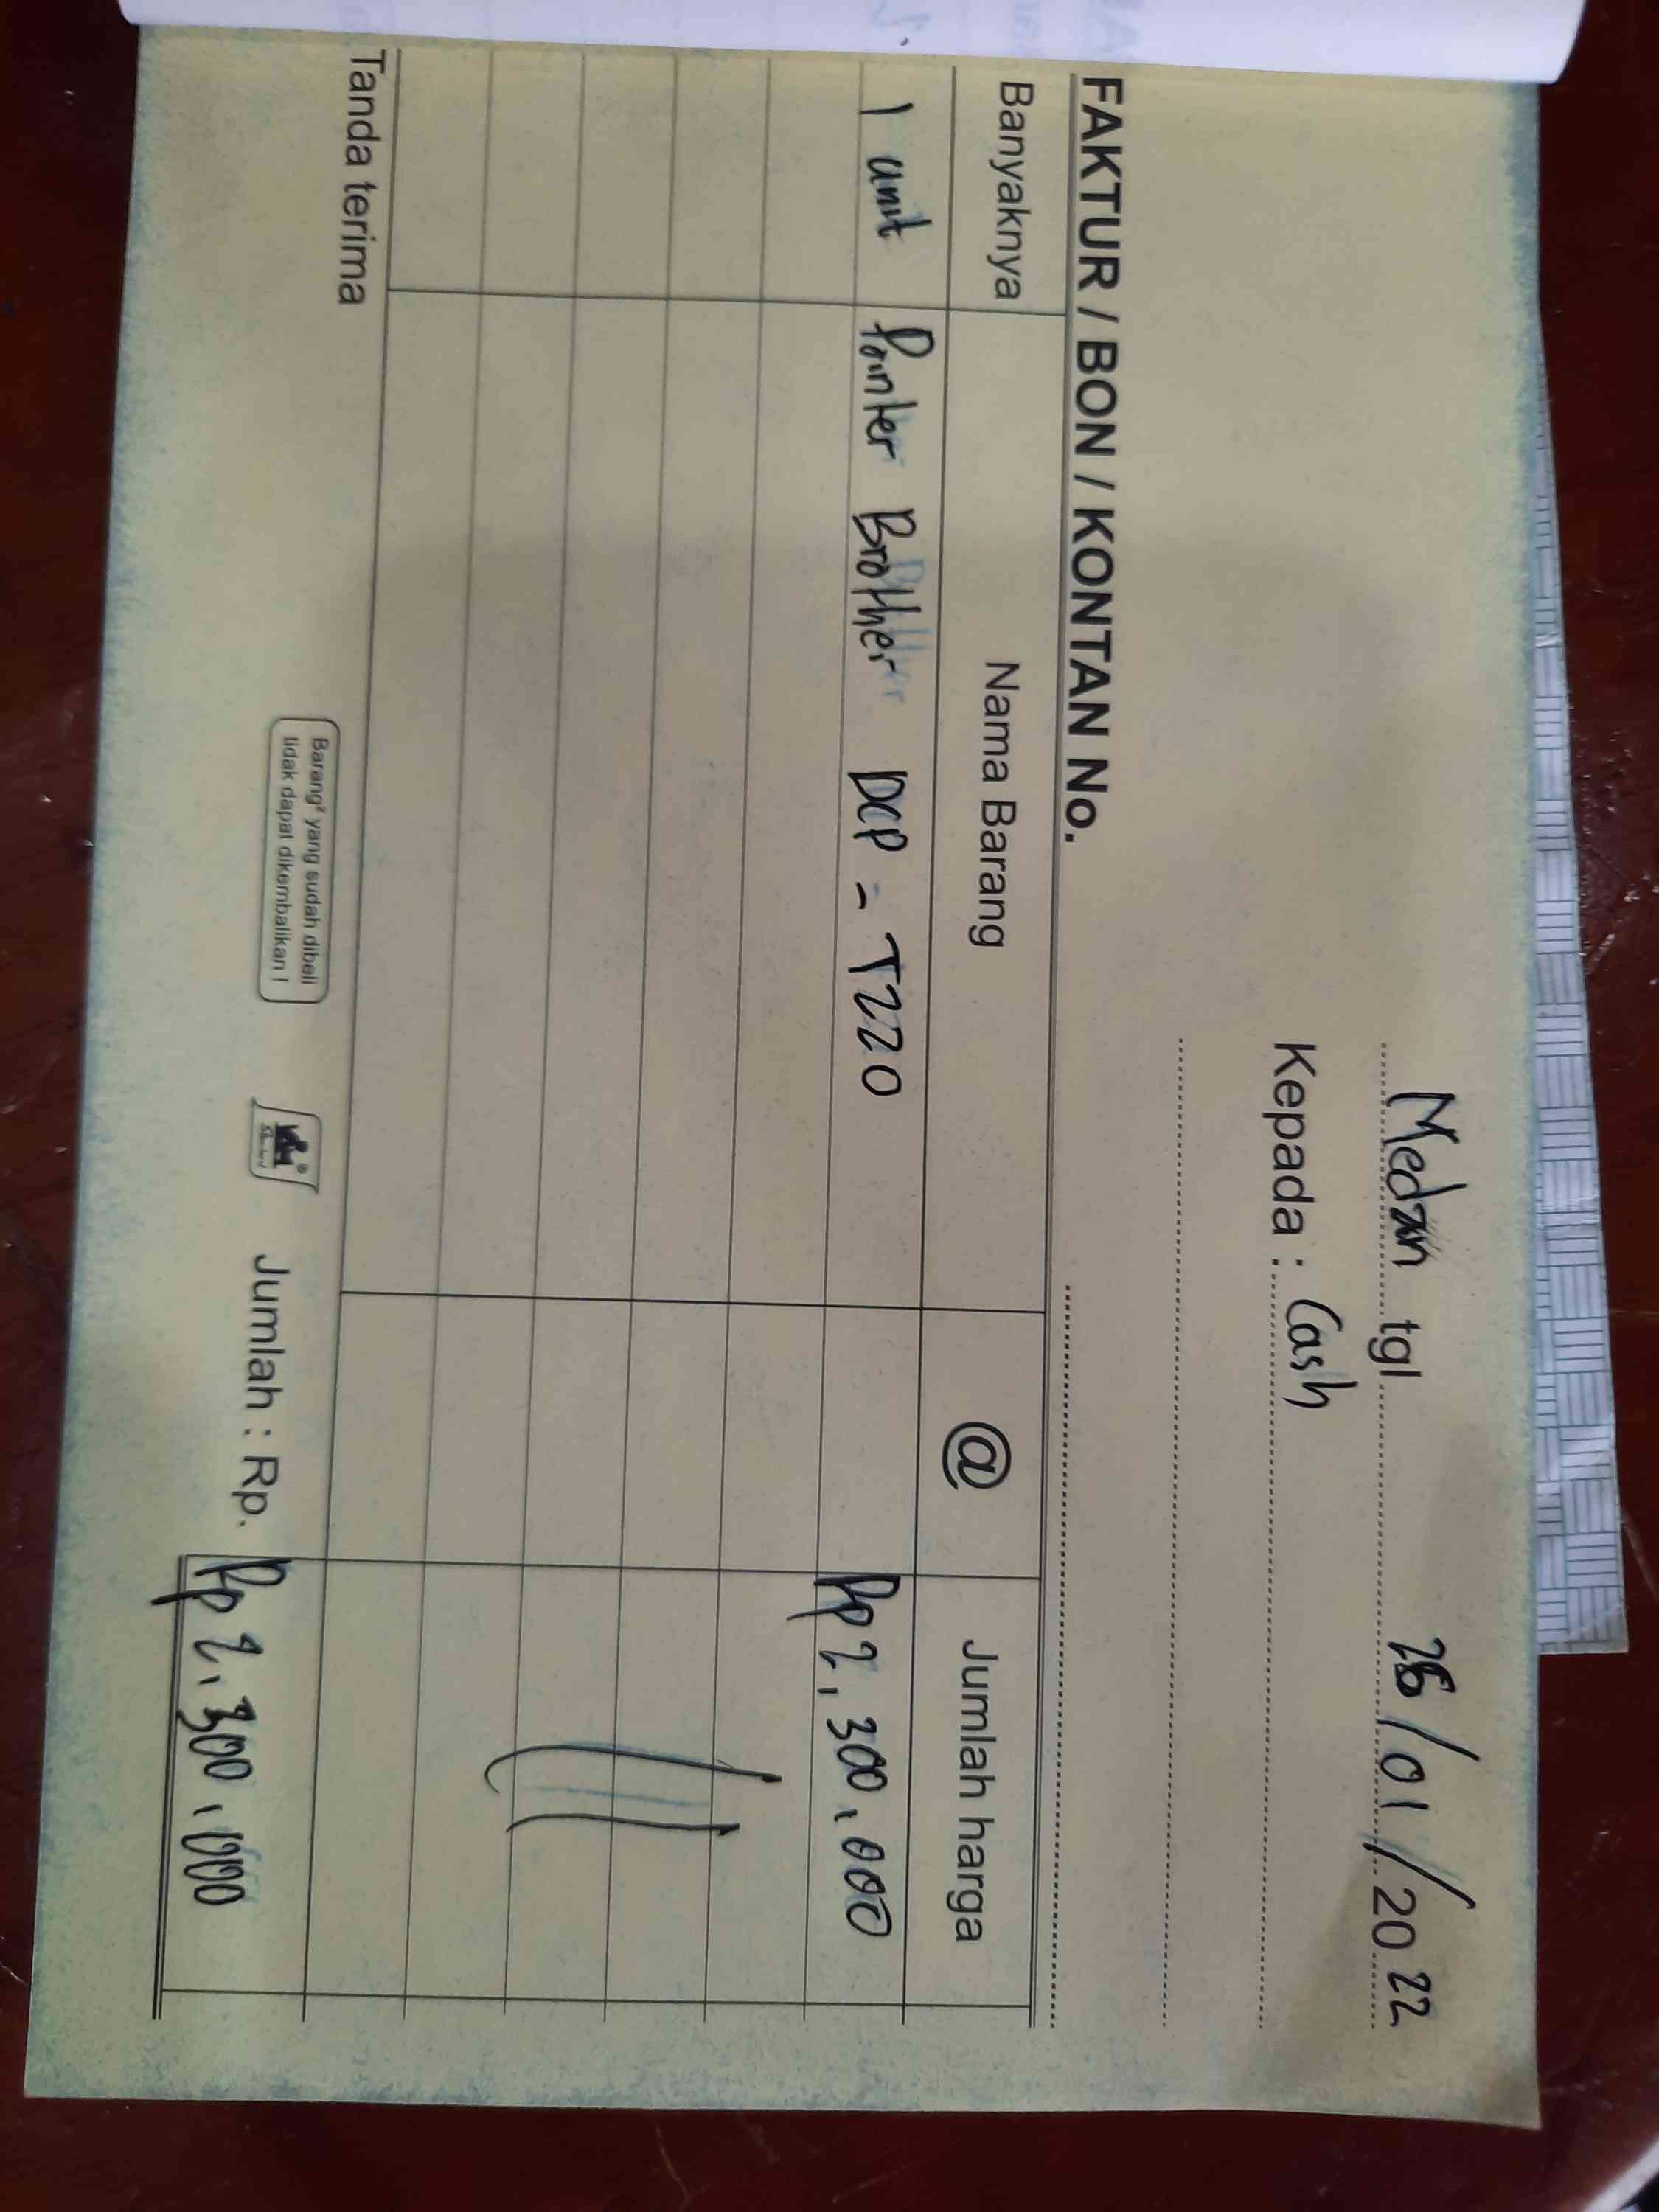 Medan tgl 26/01/2022
Kepada : Cash
FAKTUR / BON / KONTAN No.
Banyaknya Nama Barang @ Jumlah harga
1 unit Printer Brother DCP - T220 Rp 2.300.000
Tanda terima Jumlah : Rp. Rp 2.300.000
Barang² yang sudah dibeli
tidak dapat dikembalikan !